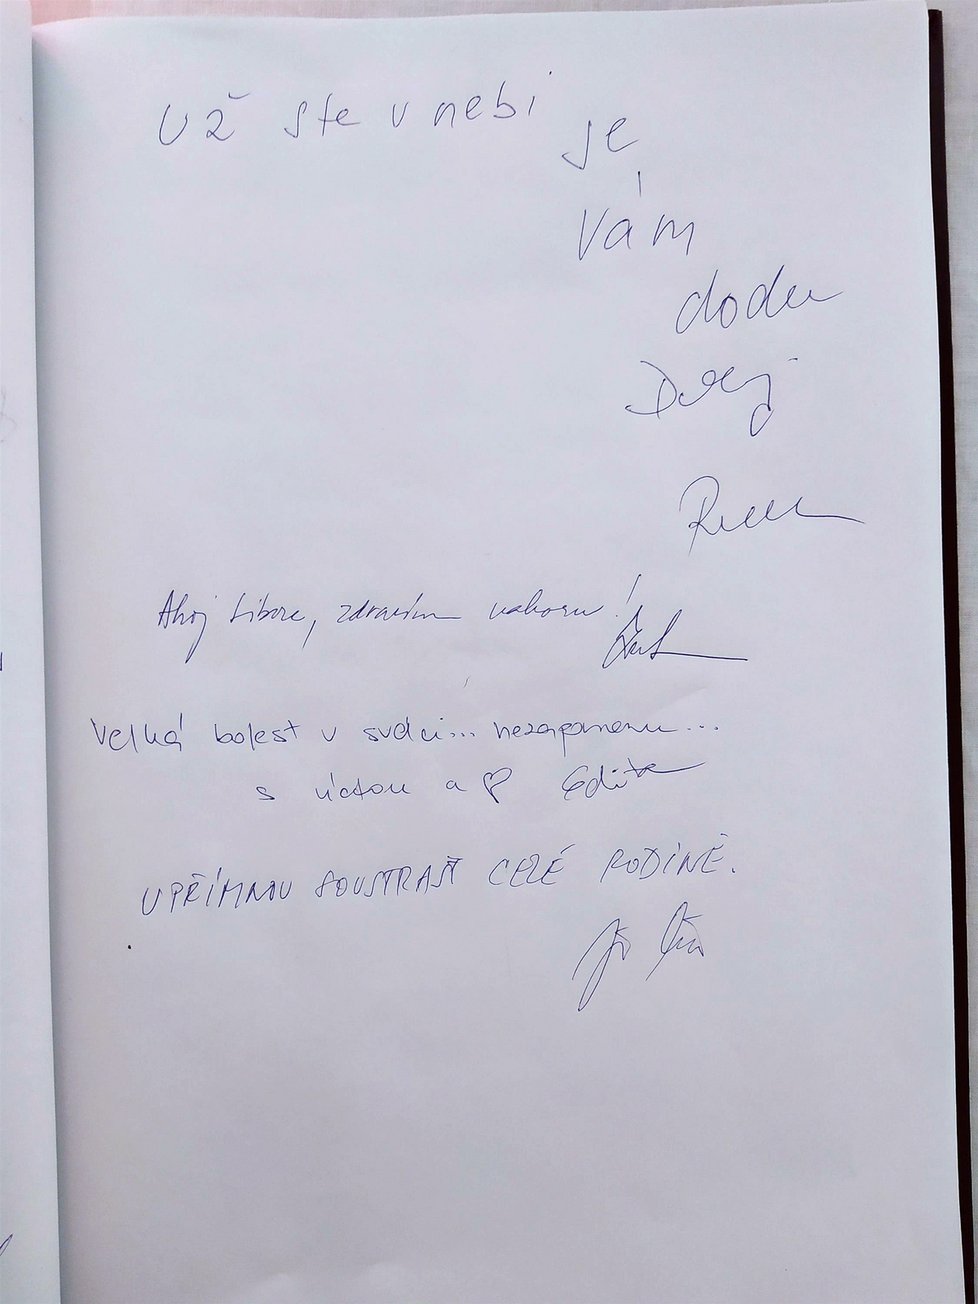 už ste v nebi
je
vám
dodu
Ahoj Libore, zdravím nahoru!
Velká bolest v srdci... nezapomenu...
s úctou a ♡ Edita
UPŘÍMNOU SOUSTRAST CELÉ RODINĚ.